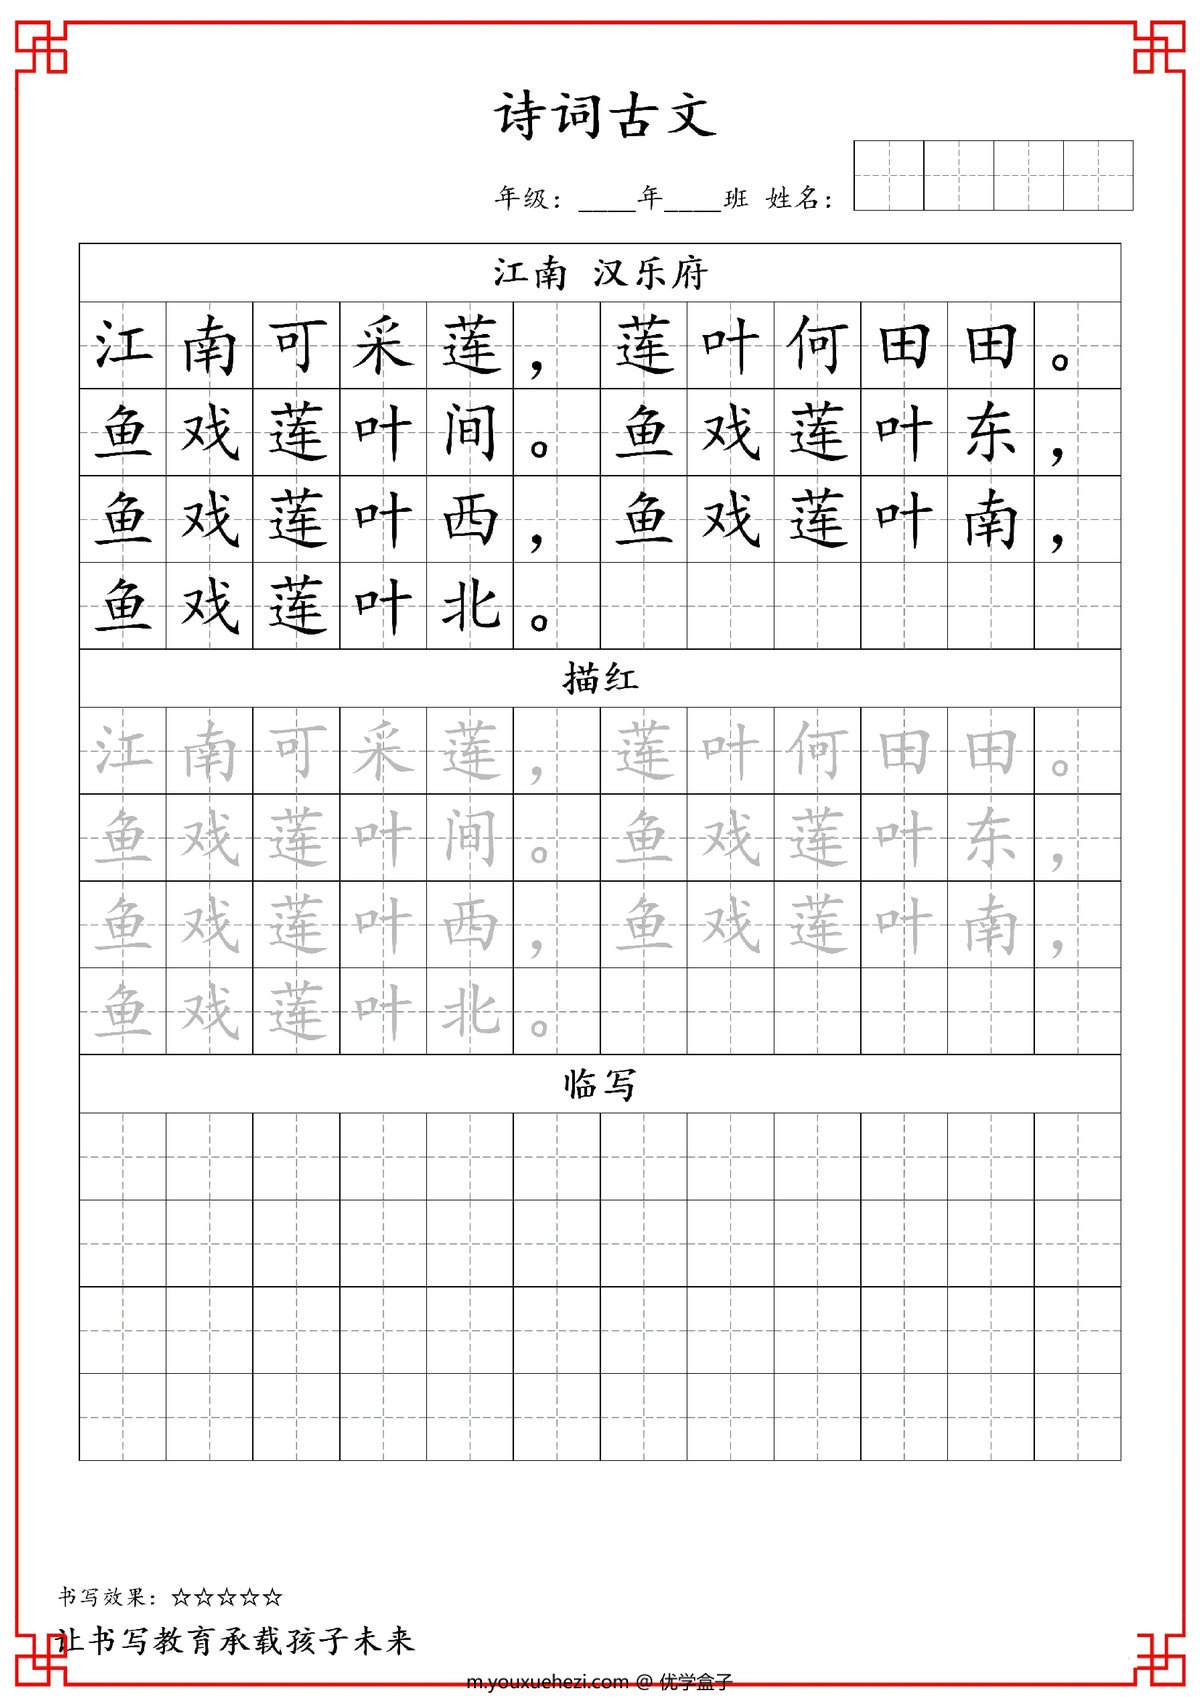 诗词古文
年级：____年____班 姓名：
江南 汉乐府
江南可采莲，莲叶何田田。
鱼戏莲叶间。鱼戏莲叶东，
鱼戏莲叶西，鱼戏莲叶南，
鱼戏莲叶北。
描红
江南可采莲，莲叶何田田。
鱼戏莲叶间。鱼戏莲叶东，
鱼戏莲叶西，鱼戏莲叶南，
鱼戏莲叶北。
临写
书写效果：☆☆☆☆☆
让书写教育承载孩子未来
m.youxuehezi.com @ 优学盒子